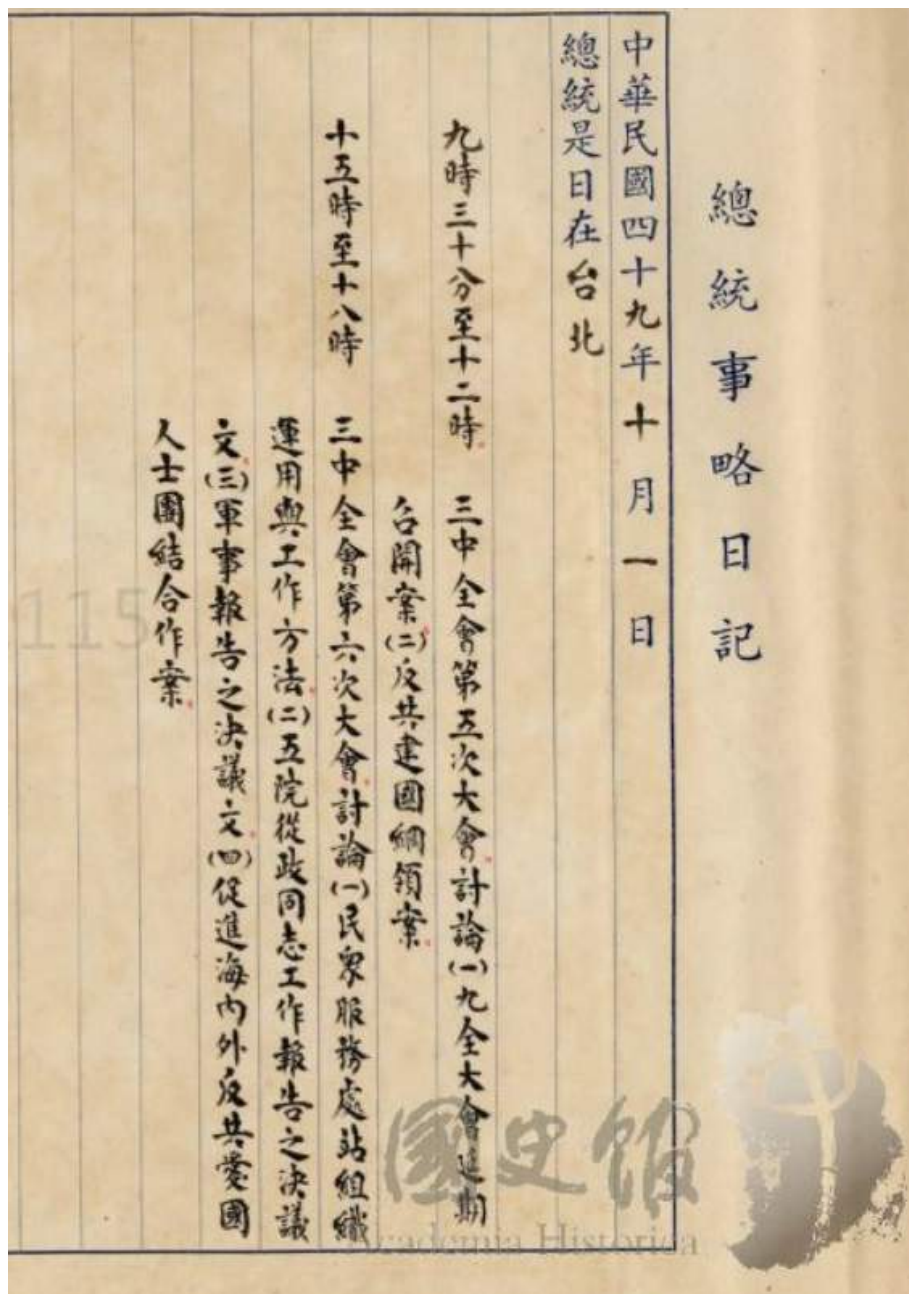 總統事略日記
中華民國四十九年十月一日
總統是日在台北
九時三十分至十二時。三中全會第五次大會。討論(一)九全大會延期
召開案。(二)反共建國綱領案。
十五時至十八時 三中全會第六次大會。討論(一)民眾服務處站組織
運用與工作方法。(二)五院從政同志工作報告之決議
文。(三)軍事報告之決議文。(四)促進海內外反共愛國
人士團結合作案。
115
國史館
Academia Historica